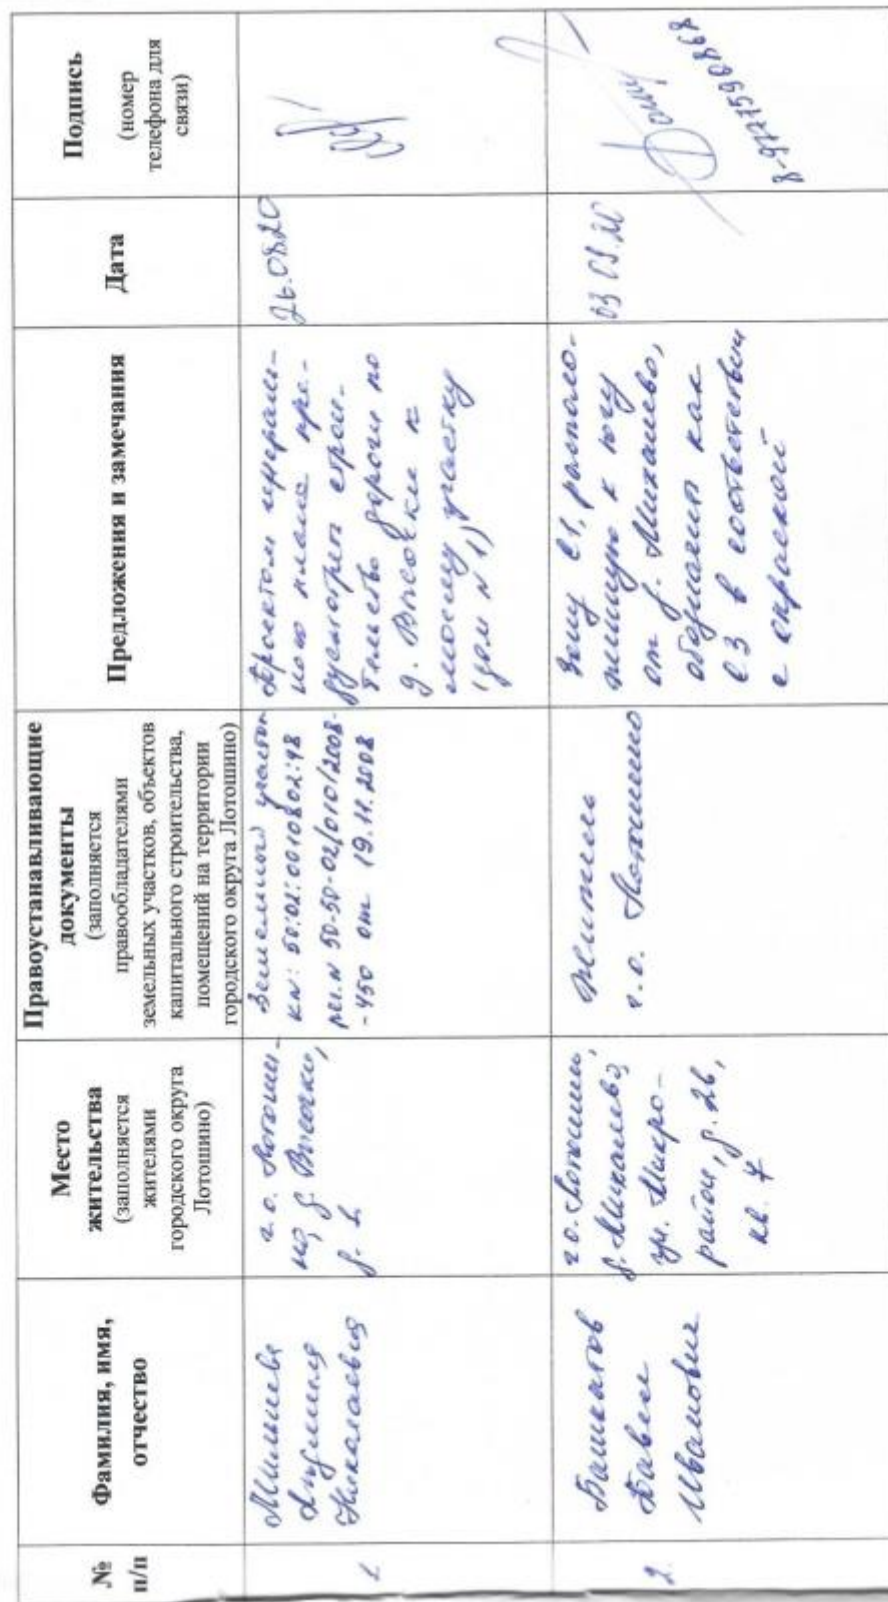 №
п/п
Фамилия, имя,
отчество
Место
жительства
(заполняется
жителями
городского округа
Лотошино)
Правоустанавливающие
документы
(заполняется
правообладателями
земельных участков, объектов
капитального строительства,
помещений на территории
городского округа Лотошино)
Предложения и замечания
Дата
Подпись
(номер
телефона для
связи)
1.
Николаевна
г.о. Лотоши-
но, д. Высочки,
д. 1
Земельный участок
КN: 50:02:0010802:98
рег.N 50-50-02/010/2008-
-450 от 19.11.2008
Проектом генераль-
ного плана пре-
дусмотреть строи-
тельство дороги по
д. Высочки к
моему участку
(дом N 1)
26.08.20
2.
Башкатов
Павел
Иванович
г.о. Лотошино,
д. Михалево,
ул. Микро-
район, д. 26,
кв. 7
житель
г.о. Лотошино
Зону С1, располо-
женную к югу
от д. Михалево,
обозначить как
С3 в соответствии
с окраской
03.09.20